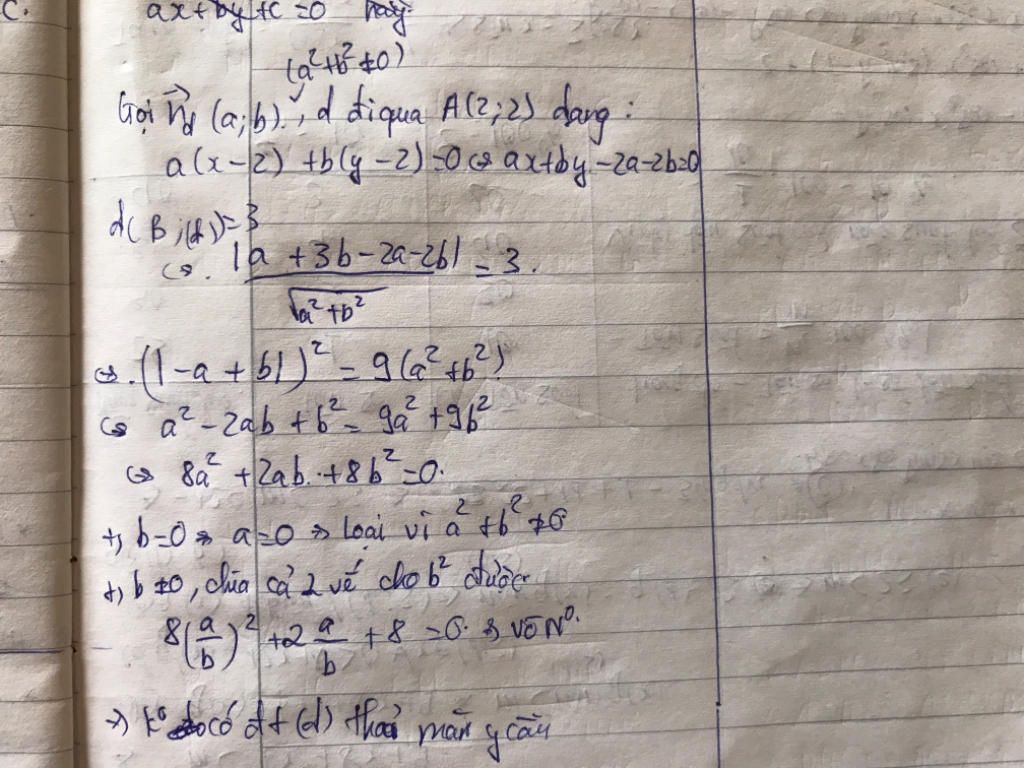 c. ax+by+c=0
(a²+b²≠0)
Gọi n⃗d (a;b), d đi qua A(2;2) dạng:
a(x-2) +b(y-2)=0 ⇔ ax+by-2a-2b=0
d(B;(d))=3
⇔. |a +3b-2a-2b| / √(a²+b²) = 3.
⇔. (|-a+b|)² = 9(a²+b²)
⇔ a²-2ab+b² = 9a²+9b²
⇔ 8a²+2ab+8b²=0.
+, b=0 ⇒ a=0 ⇒ loại vì a²+b²≠0
+, b≠0, chia cả 2 vế cho b² được
8(a/b)² +2 a/b +8 =0 ⇒ vô N⁰.
⇒ K⁰ có đt (d) thoả mãn y cầu